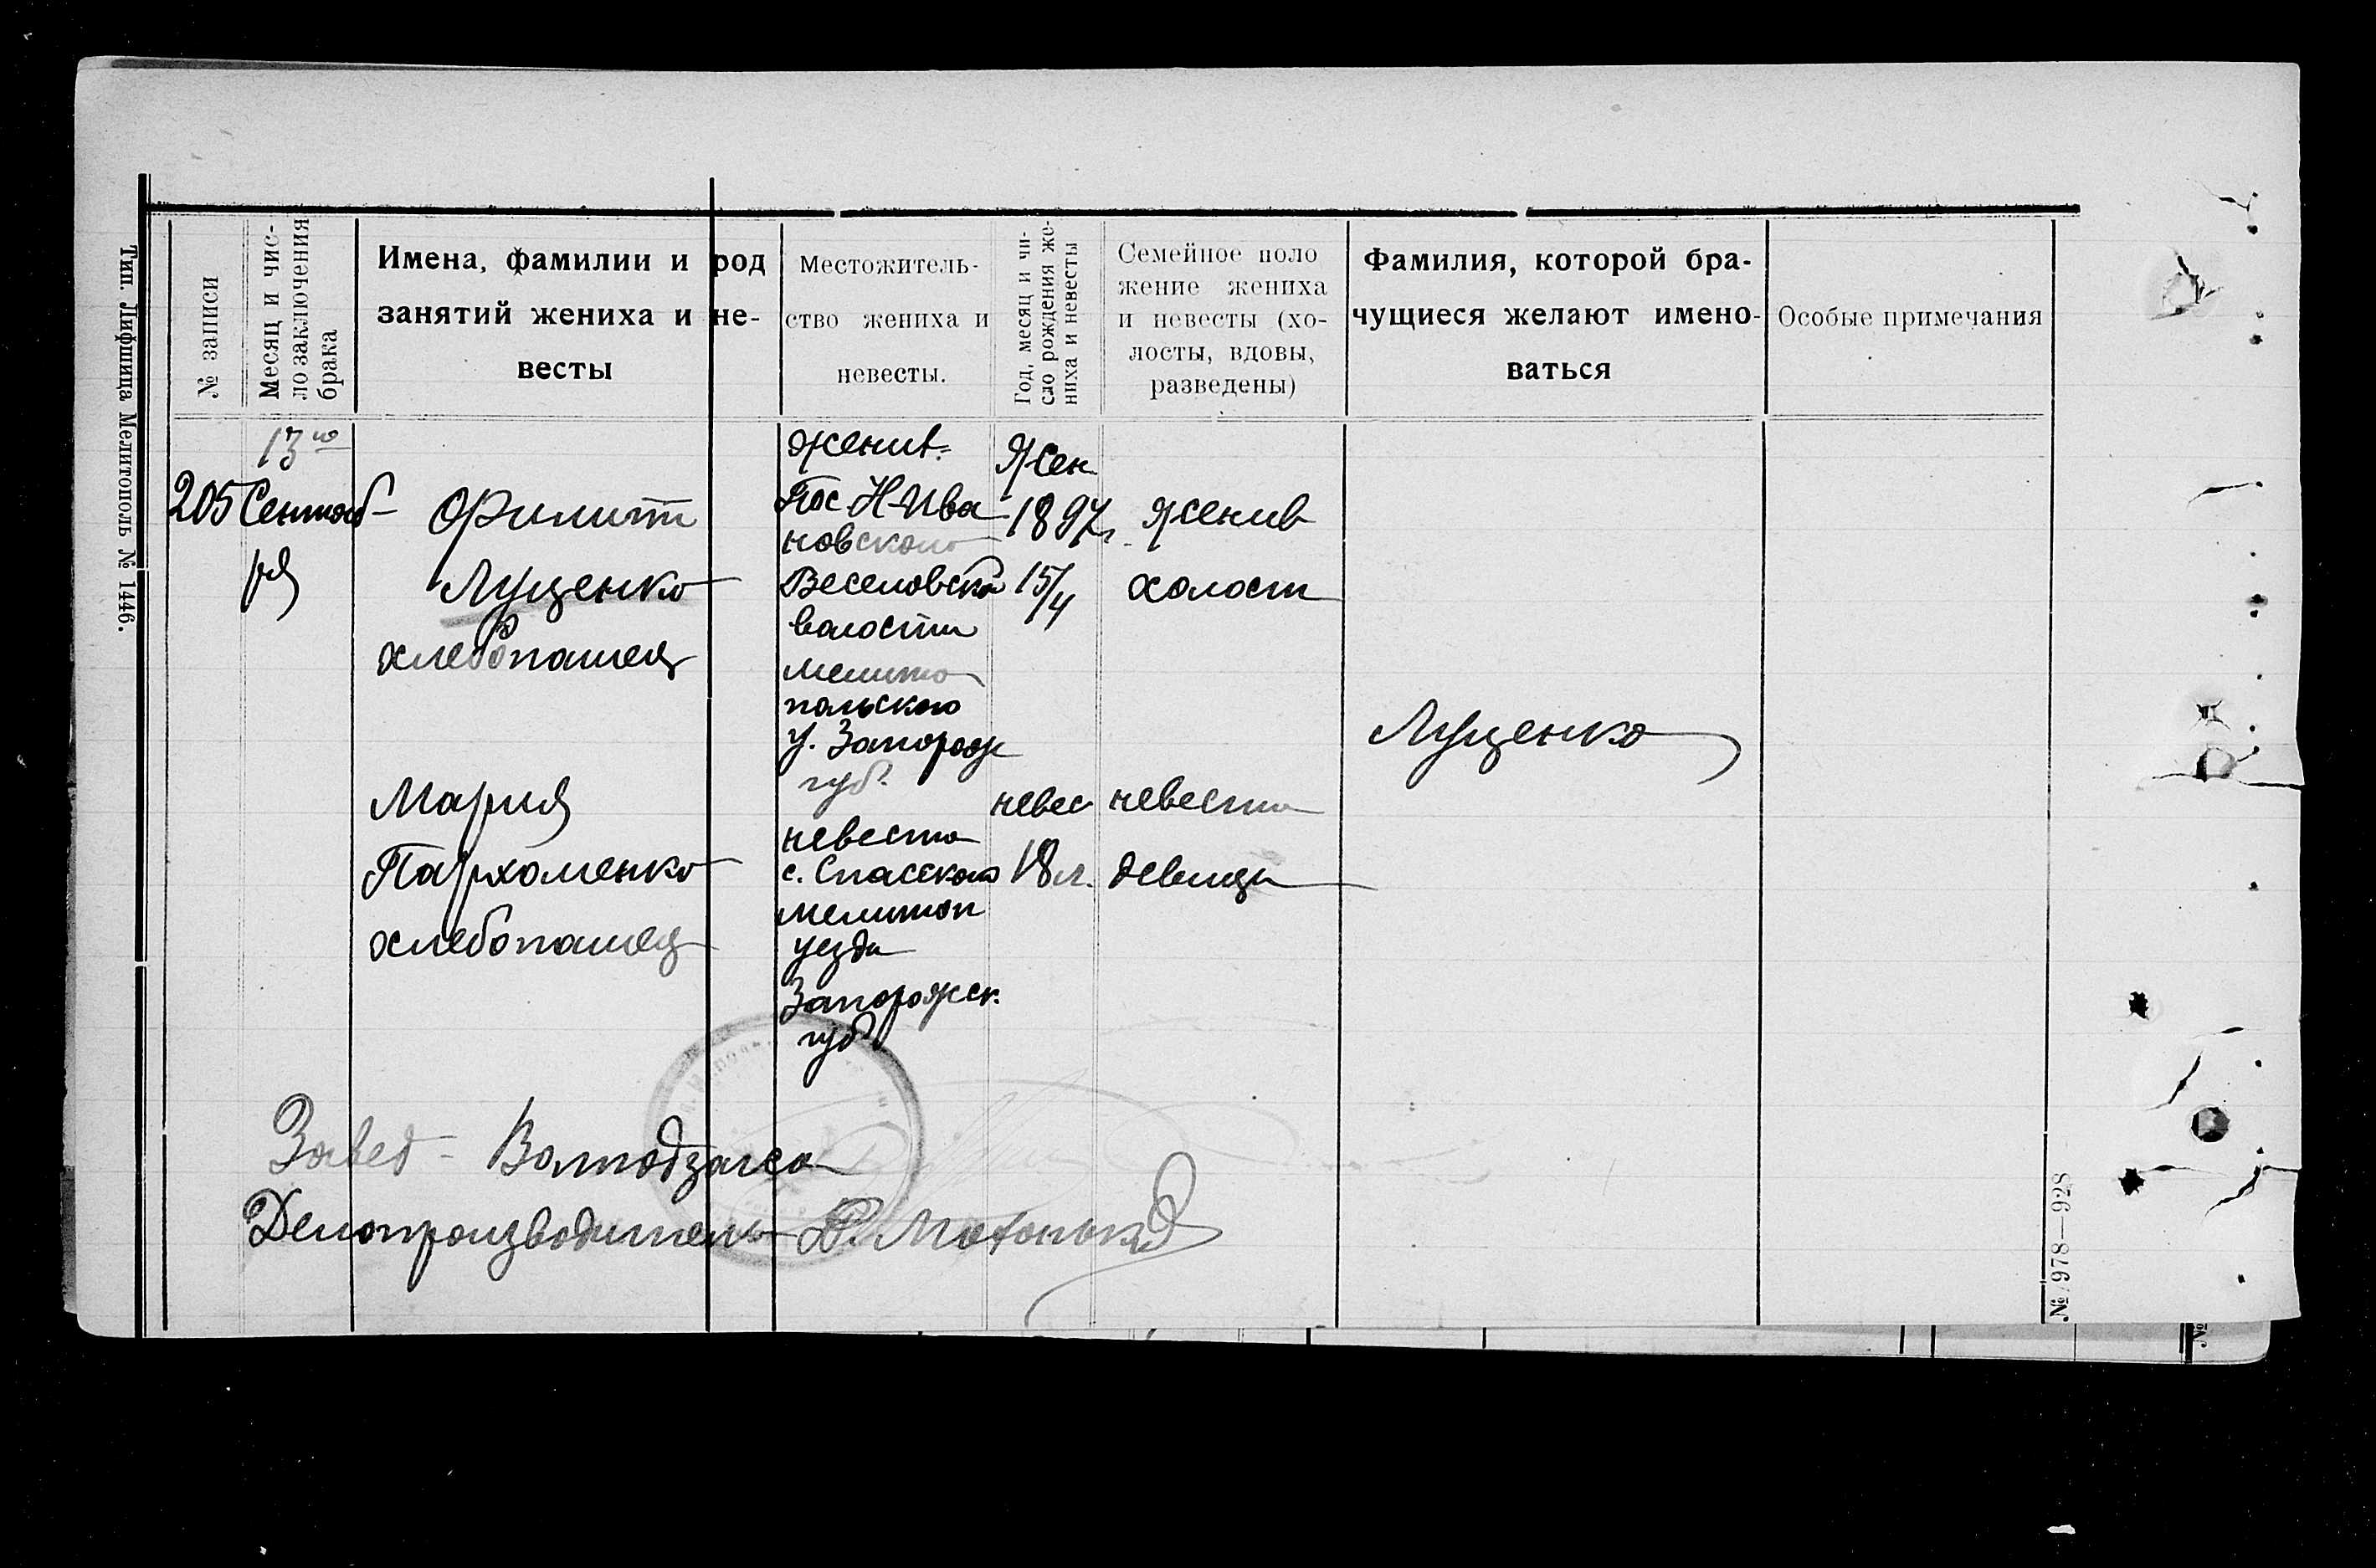 Тип. Лифшица Мелитополь № 1446.
№ записи
Месяц и чис-
ло заключения
брака
Имена, фамилии и род
занятий жениха и не-
весты
Местожитель-
ство жениха и
невесты.
Год, месяц и чи-
сло рождения же-
ниха и невесты
Семейное поло
жение жениха
и невесты (хо-
лосты, вдовы,
разведены)
Фамилия, которой бра-
чущиеся желают имено-
ваться
Особые примечания
205
13го
Сентяб-
ря
Филипп
Лущенко
хлебопашец
Мария
Пархоменко
хлебопашец
жених
Пос. Н-Ива
новского
Веселовской
волости
Мелито
польского
у. Запорож
губ.
невеста
с. Спасского
Мелитоп
уезда
Запорожск.
губ.
Жен
1897г.
15/4
невес
18 л.
жених
холост
невеста
девица
Лущенко
Завед-
Делопроизводитель
№ 978—928